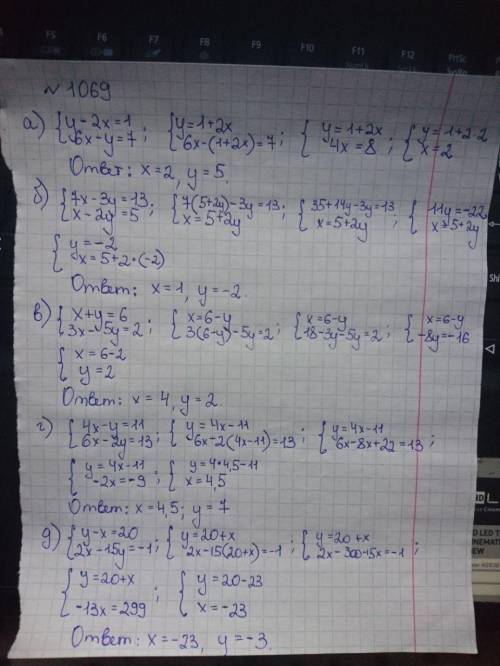 F5 F6 F7 F8 F9 F10 F11 F12 PrtSc
№1069
а) {y-2x=1 6x-y=7; {y=1+2x 6x-(1+2x)=7; {y=1+2x 4x=8; {y=1+2·2 x=2
Ответ: x=2, y=5.
б) {7x-3y=13 x-2y=5; {7(5+2y)-3y=13 x=5+2y; {35+14y-3y=13 x=5+2y; {11y=-22 x=5+2y
{y=-2 x=5+2·(-2)
Ответ: x=1, y=-2.
в) {x+y=6 3x-5y=2; {x=6-y 3(6-y)-5y=2; {x=6-y 18-3y-5y=2; {x=6-y -8y=-16
{x=6-2 y=2
Ответ: x=4, y=2.
г) {4x-y=11 6x-2y=13; {y=4x-11 6x-2(4x-11)=13; {y=4x-11 6x-8x+22=13;
{y=4x-11 -2x=-9; {y=4·4,5-11 x=4,5
Ответ: x=4,5; y=7
д) {y-x=20 2x-15y=-1; {y=20+x 2x-15(20+x)=-1; {y=20+x 2x-300-15x=-1;
{y=20+x -13x=299; {y=20-23 x=-23
Ответ: x=-23, y=-3.